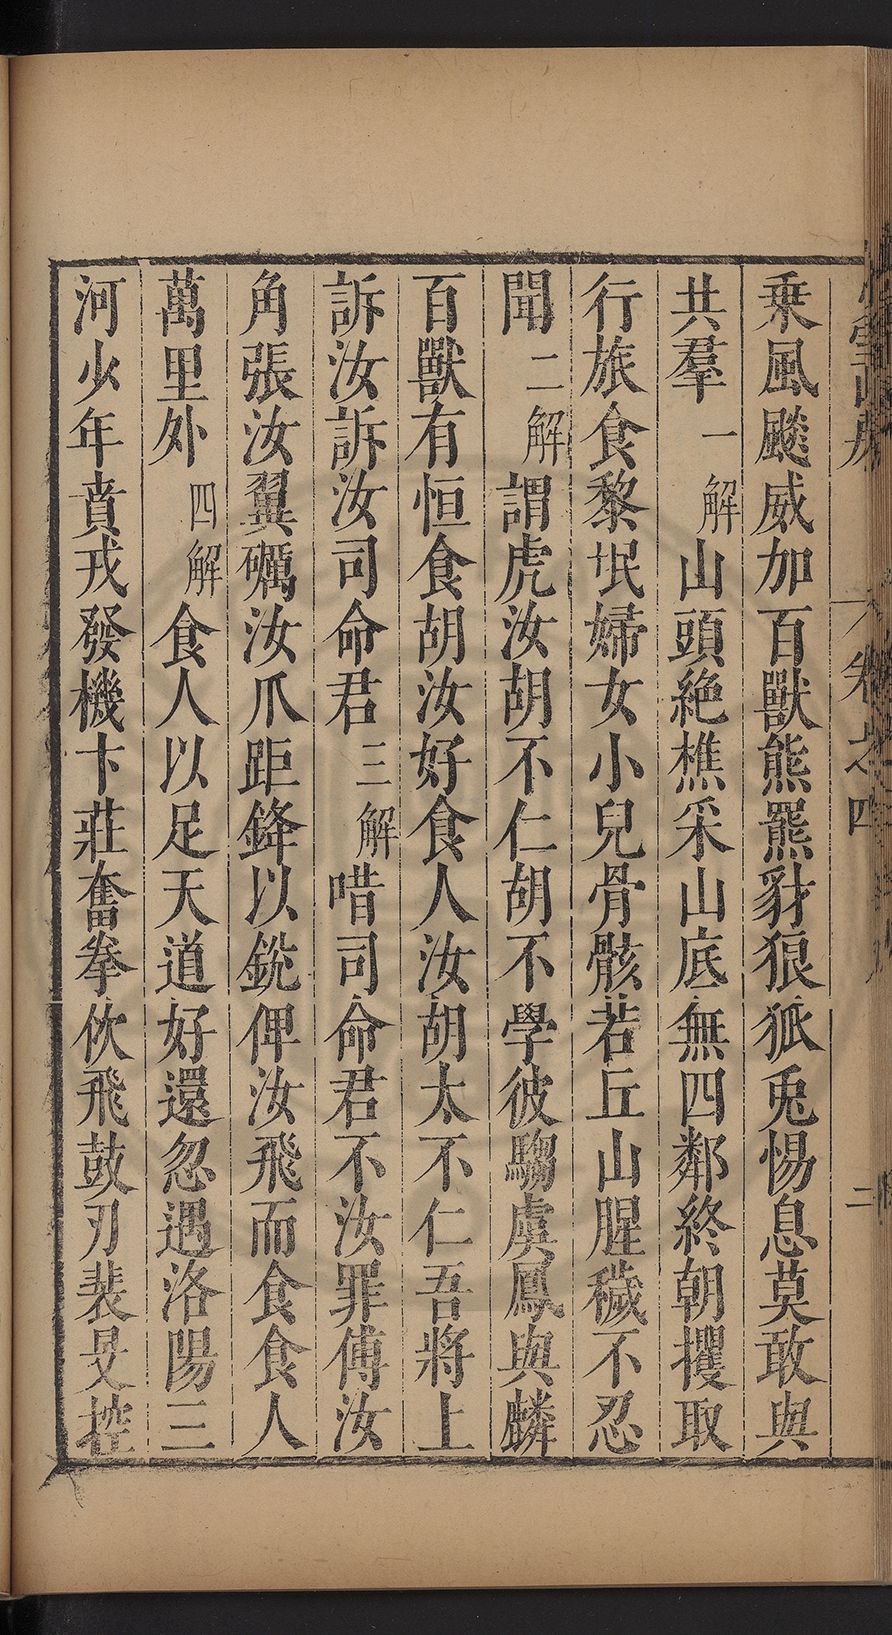 卷之四
二
乘風颷威加百獸熊羆豺狼狐兎惕息莫敢與
共羣一解山頭絶樵采山底無四鄰終朝攫取
行旅食黎氓婦女小兒骨骸若丘山腥穢不忍
聞二解謂虎汝胡不仁胡不學彼騶虞鳳與麟
百獸有恒食胡汝好食人汝胡太不仁吾將上
訴汝訴汝司命君三解唶司命君不汝罪傅汝
角張汝翼礪汝爪距鋒以銳俾汝飛而食食人
萬里外四解食人以足天道好還忽遇洛陽三
河少年賁戎發機卞莊奮拳佽飛鼓刃裴旻控